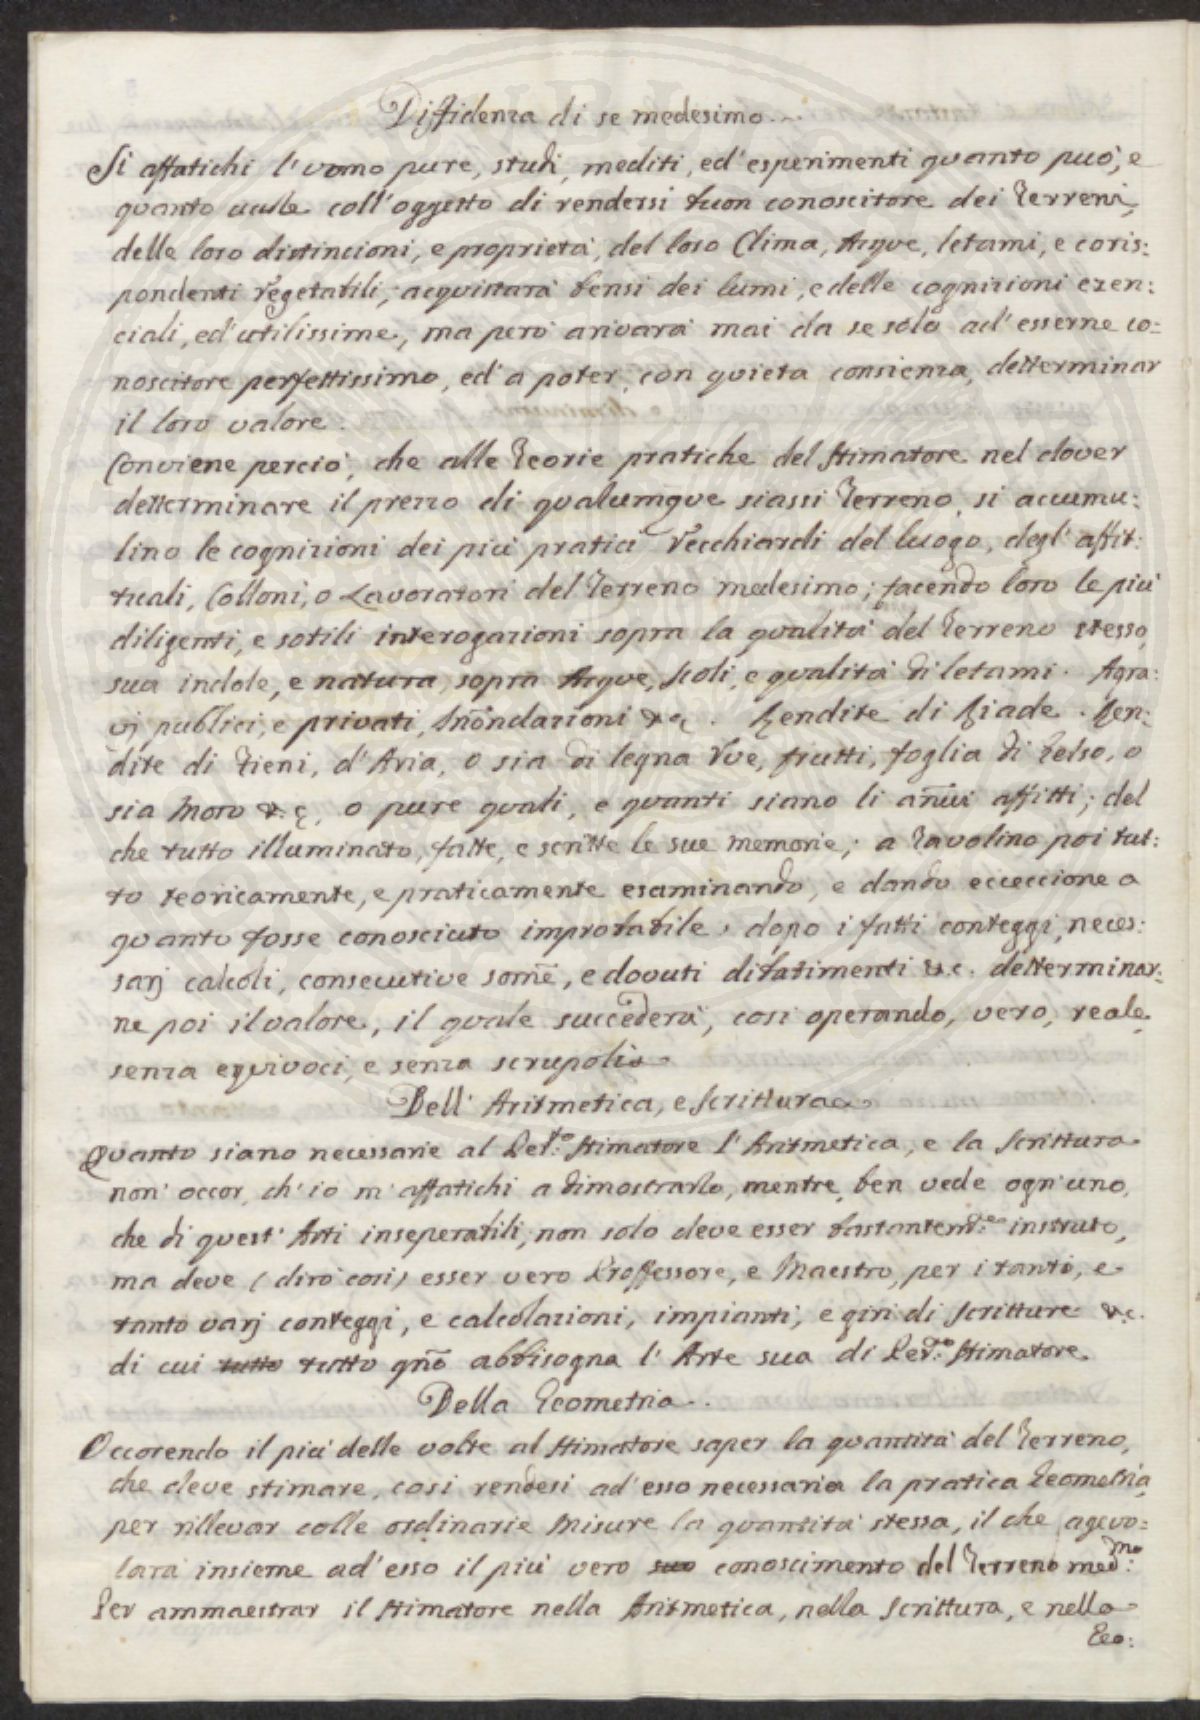 Diffidenza di se medesimo.
Si affatichi l'uomo pure, studi, mediti, ed'esperimenti quanto può, e
quanto vuole coll'oggetto di rendersi buon conoscitore dei Terreni,
delle loro distincioni, e proprietà, del loro Clima, Acque, letami, e coris:
pondenti Vegetabili; acquistarà bensi dei lumi, e delle cognizioni ezen:
ciali, ed'utilissime, ma però arivarà mai da se solo ad'esserne co:
noscitore perfettissimo, ed'a poter, con quieta consienza, detterminar
il loro valore.
Conviene perciò, che alle Teorie pratiche del Stimatore nel dover
detterminare il prezzo di qualumque siassi Terreno, si accumu:
lino le cognizioni dei più pratici Vecchiardi del luogo, degl'affit:
tuali, Colloni, o Lavoratori del Terreno medesimo; facendo loro le più
diligenti, e sotili interogazioni sopra la qualità del Terreno stesso,
sua indole, e natura, sopra Acque, Scoli, e qualità di letami. Agra:
vj publici, e privati, Inondazioni &c. Rendite di Biade. Ren:
dite di Fieni, d'Aria, o sia di legna Vue, frutti, foglia di Gelso, o
sia Moro &c, o pure quali, e quanti siano li añui affitti; del
che tutto illuminato, fatte, e scritte le sue memorie; a Tavolino poi tut:
to teoricamente, e praticamente esaminando, e dando ecceccione a
quanto fosse conosciuto improbabile, dopo i fatti conteggi, neces:
sarj calcoli, consecutive some, e dovuti dibatimenti &c. detterminar:
ne poi il valore, il quale succederà, così operando, vero, reale,
senza equivoci, e senza scrupoli.
Dell' Aritmetica, e Scrittura.
Quanto siano necessarie al Per.to Stimatore l'Aritmetica, e la Scrittura
non' occor, ch'io m'affatichi a dimostrarlo, mentre, ben vede ogn'uno,
che di quest' Arti inseperabili, non solo deve esser bastantem.te instruto,
ma deve (dirò così) esser vero Proffessore, e Maestro, per i tanti, e
tanto varj conteggi, e calcolazioni, impianti, e giri di Scritture &c.
di cui tutto tutto gño abbisogna l'Arte sua di Per.to Stimatore.
Della Geometria.
Occorendo il più delle volte al Stimatore saper la quantità del Terreno,
che deve stimare, così rendesi ad'esso necessaria la pratica Geometria,
per rillevar colle ordinarie Misure la quantità stessa, il che agevo:
larà insieme ad'esso il più vero suo conoscimento del Terreno med.mo
Per ammaestrar il Stimatore nella Aritmetica, nella Scrittura, e nella
Geo: